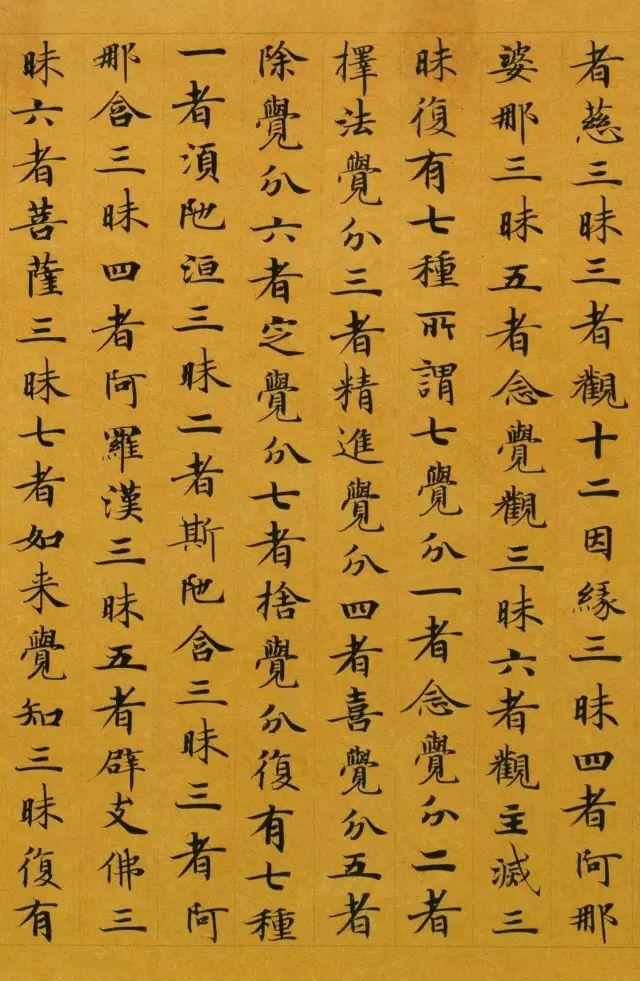 者慈三昧三者觀十二因緣三昧四者阿那
婆那三昧五者念覺觀三昧六者觀生滅三
昧復有七種所謂七覺分一者念覺分二者
擇法覺分三者精進覺分四者喜覺分五者
除覺分六者定覺分七者捨覺分復有七種
一者須陁洹三昧二者斯陁含三昧三者阿
那含三昧四者阿羅漢三昧五者辟支佛三
昧六者菩薩三昧七者如来覺知三昧復有